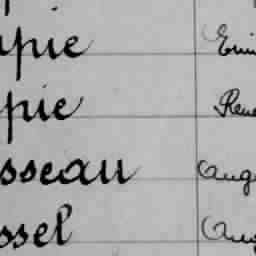 upie Emi
pie Rene
sseau Aug
ssel Aug